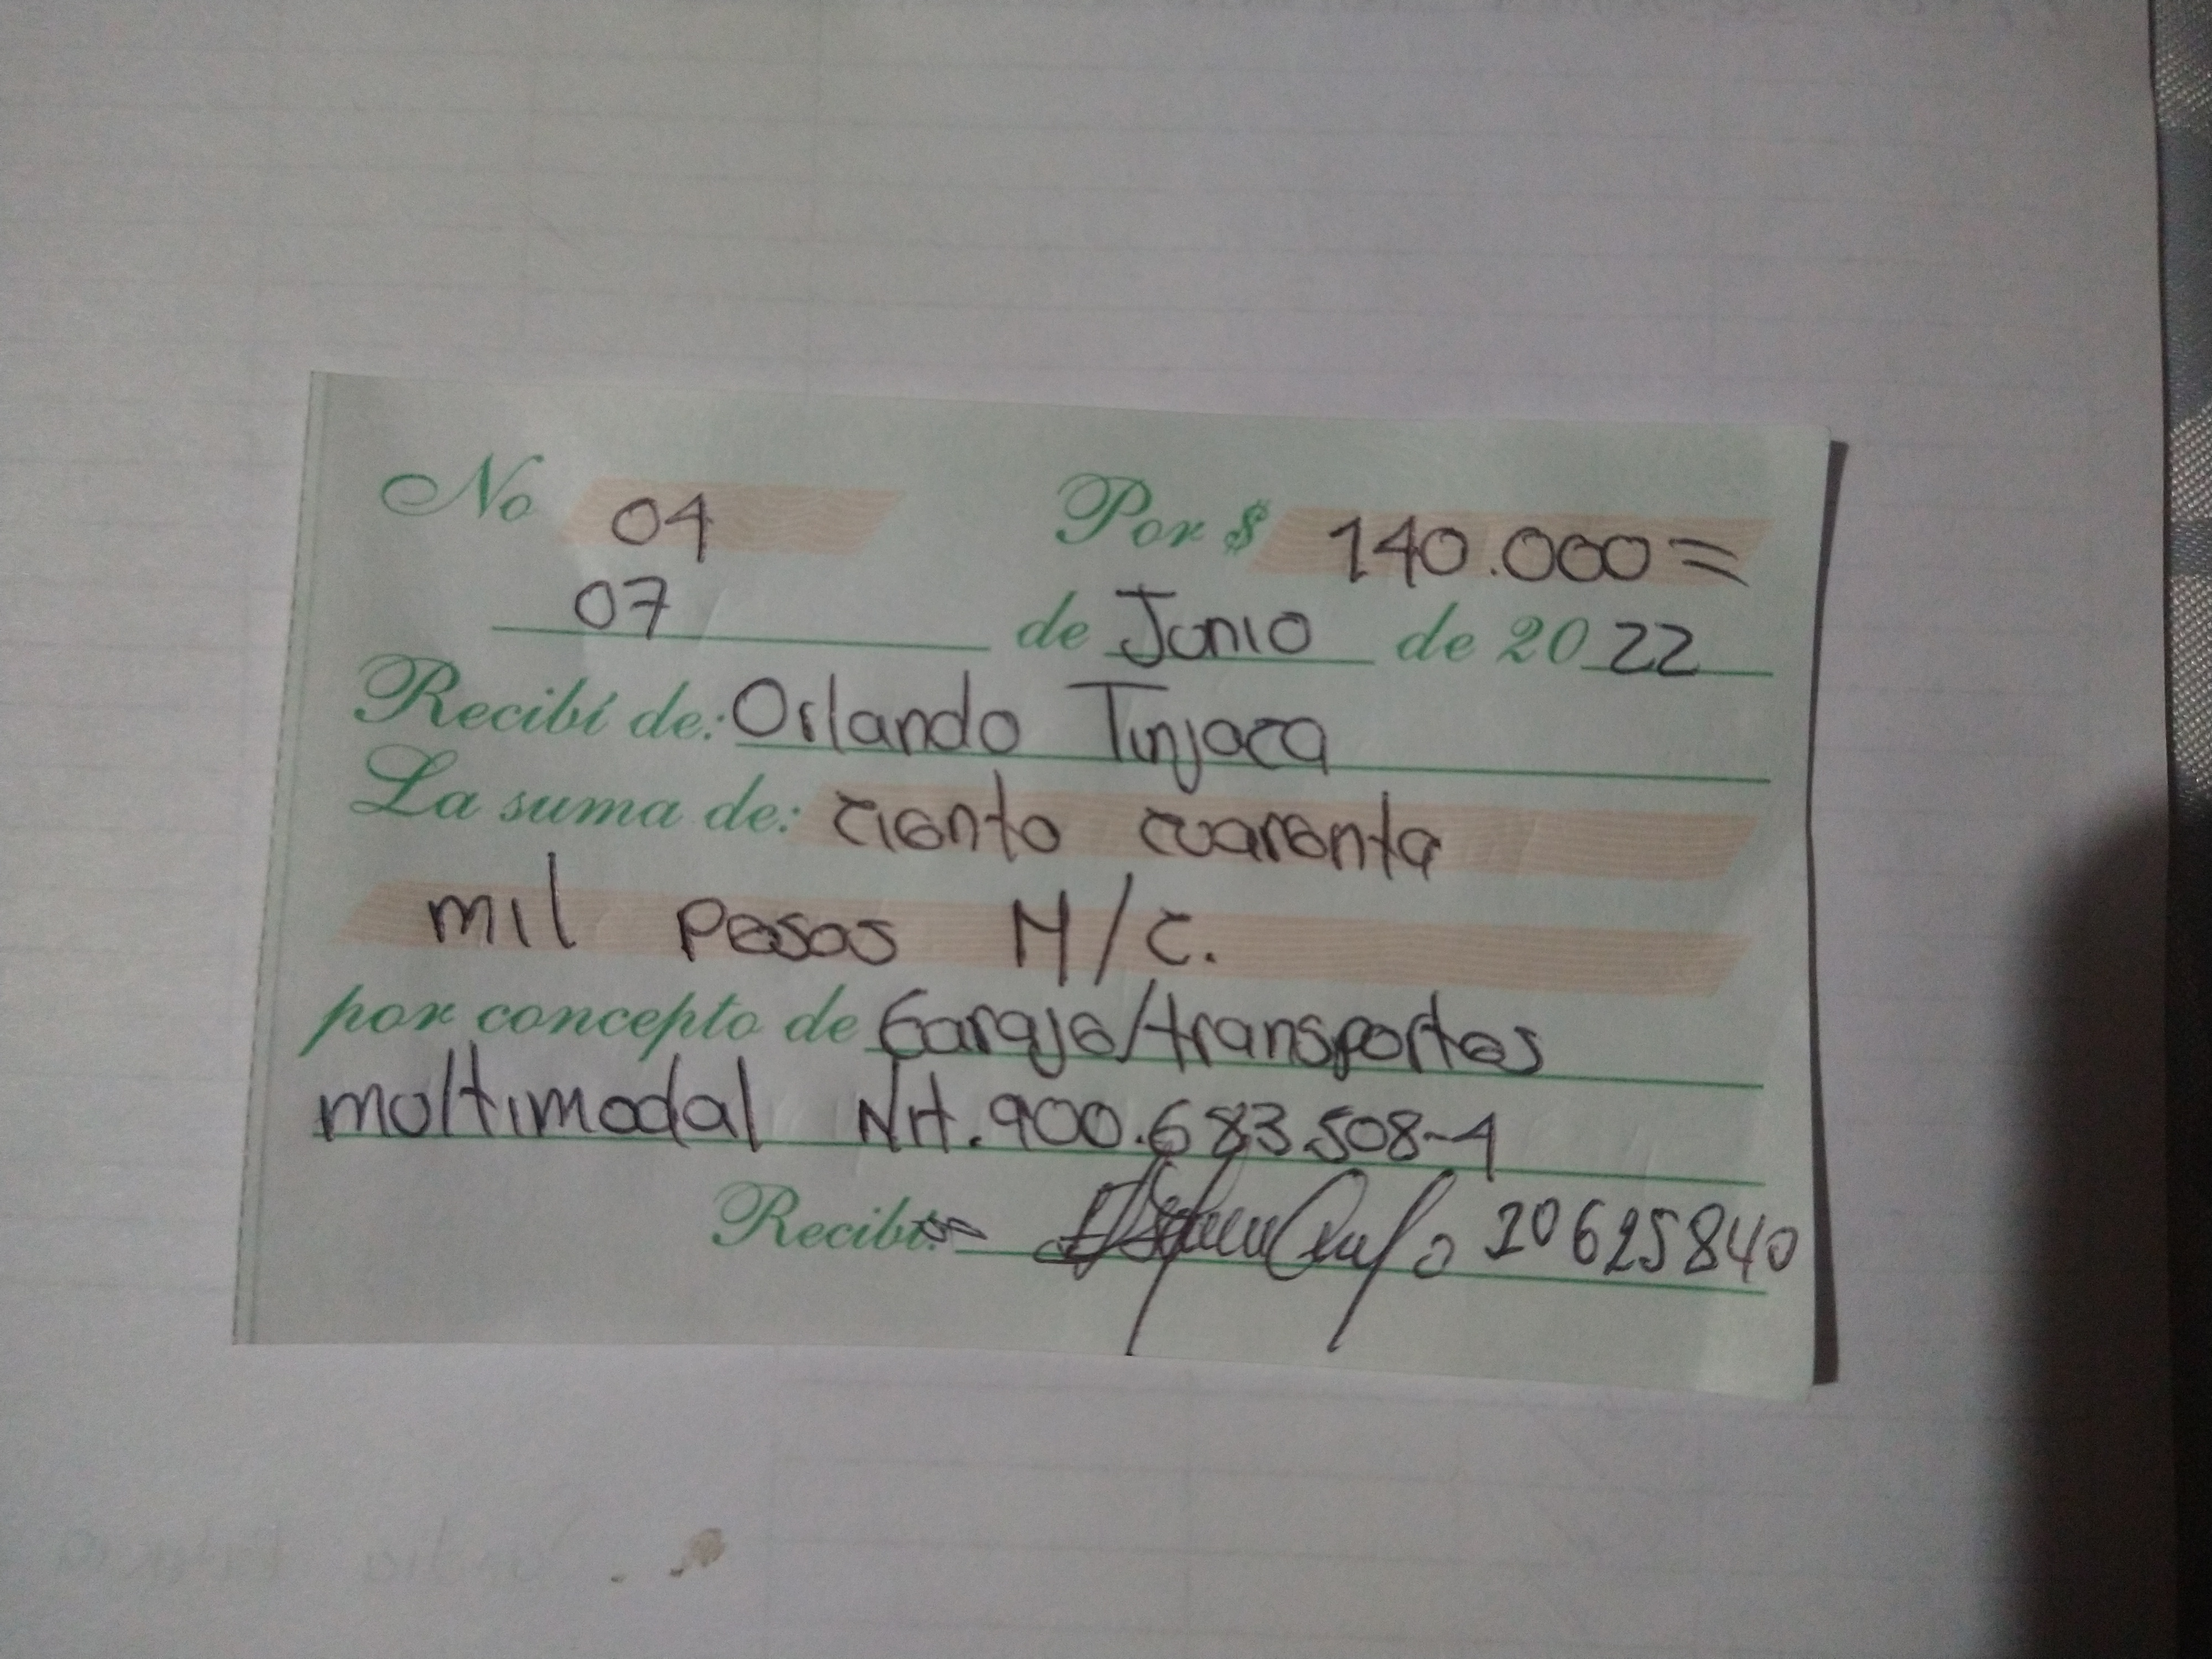 No 04 Por $ 140.000=
07 de Junio de 2022
Recibí de: Orlando Tinjaca
La suma de: ciento cuarenta
mil pesos M/c.
por concepto de Garaje/transportes
multimodal Nit. 900.683.508-4
Recibí: 20625840